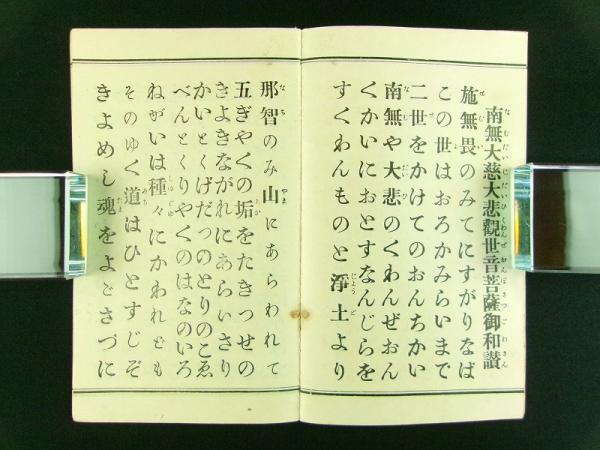 南無大慈大悲觀世音菩薩御和讃
施無畏のみてにすがりなば
この世はおろかみらいまで
二世をかけてのおんちかい
南無や大悲のくわんぜおん
くかいにおとすなんじらを
すくわんものと淨土より
那智のみ山にあらわれて
五ぎやくの垢をたきつせの
きよきながれにあらいさり
かいとくげだつのとりのこゑ
べんとくりやくのはなのいろ
ねがいは種々にかわれども
そのゆく道はひとすじぞ
きよめし魂をよどさづに